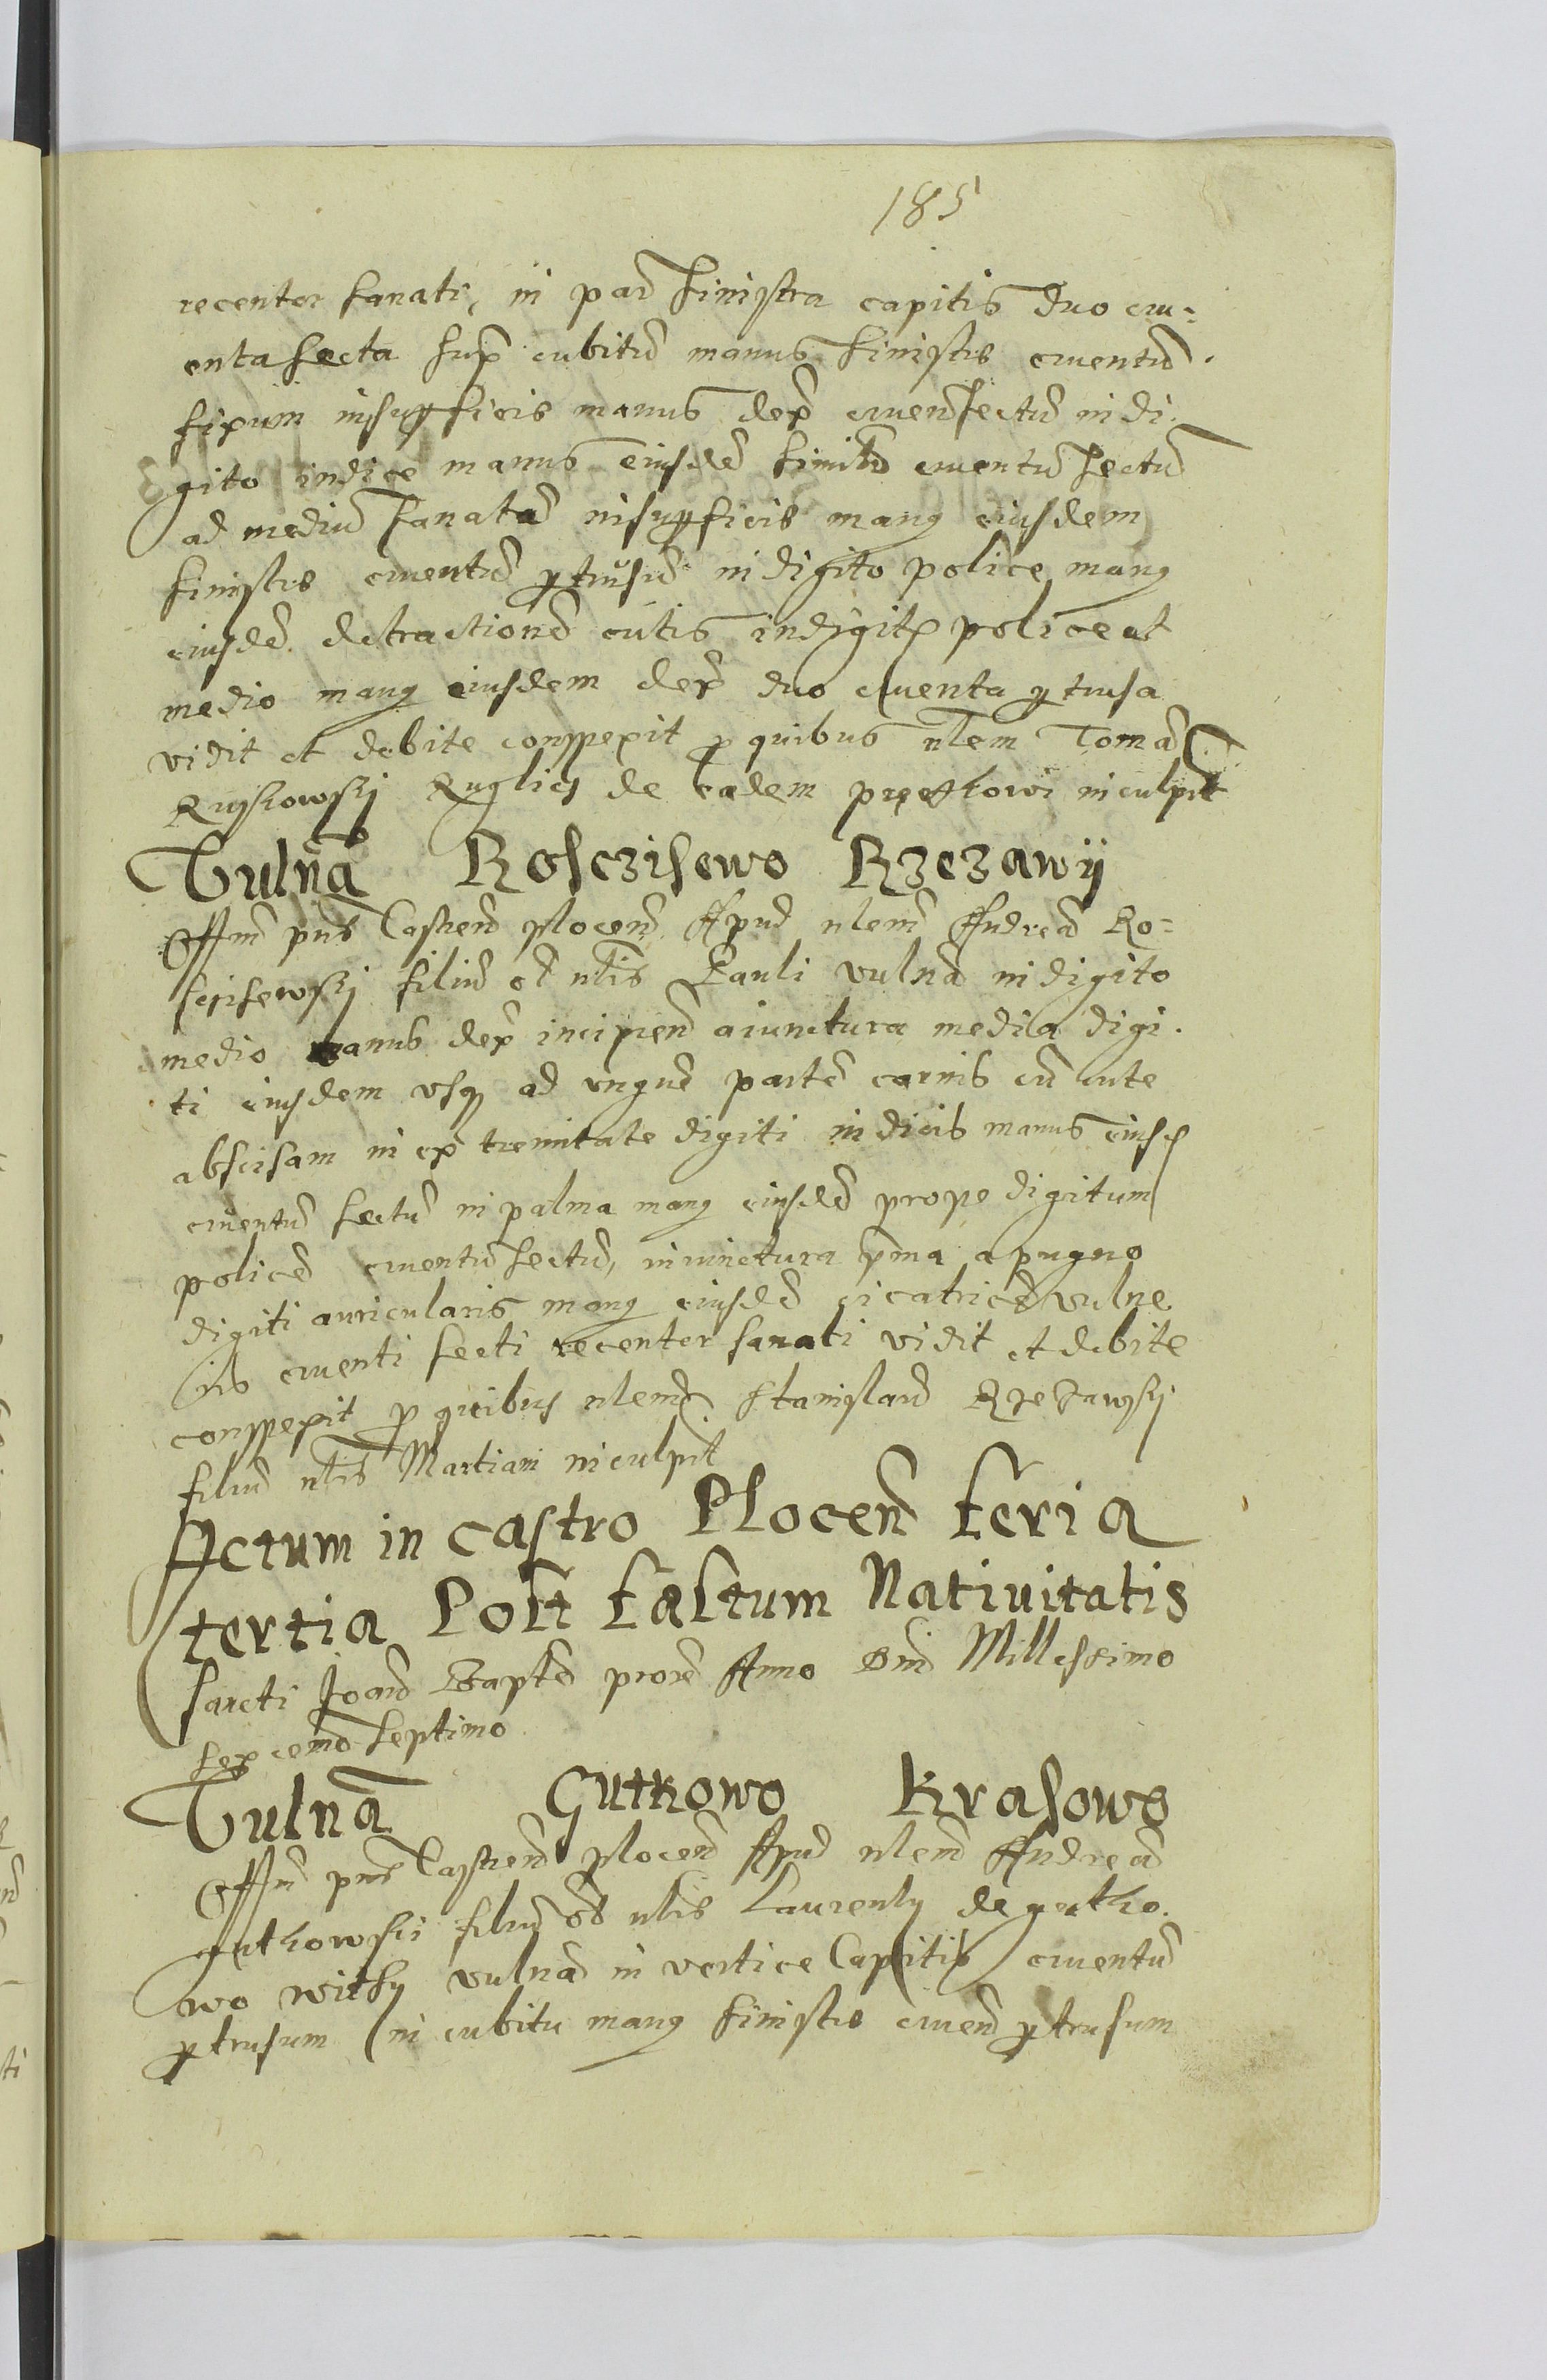 185
recenter sanati, in par sinistra capitis duo cru=
enta secta supr cubitu manus sinistre cruentu
fixum insuperficie manus dex cruen sectu in di
gito indice manus eiusde similr cruentu sectu
ad mediu sanata insuperficie manus eiusdem
sinistre cruentu pertusu in digito police manus
eiusde detractione cutis in digit police et
medio manus eiusdem dex duo cruenta pertusa
vidit et debite conspexit p quibus nlem Toma
de eadem inculpt
Vulna Rosczisewo Rzezawy
Offm pns Castren plocen Apud nlem Andrea Ro=
scisewsky filiu ol nlis Pauli vulna in digito
medio manus dex incipien a iunctura media digi
ti eiusdem usq ad ungue parte carnis cu cute
abscisam in extremitate digiti indicis manus eiusd
cruentu sectu in palma manus eiusde prope digitum
police cruentu sectu, in iunctura pma a pugno
digiti auricularis manus eiusde cicatrice vulne
ris cruenti secti recenter sanati vidit et debite
conspexit p quibus nlem Stanislau Rzezawsky
filiu nlis Martiani inculpt
Actum in castro Plocen feria
tertia Post festum Nativitatis
Sancti Joan Baptae prox Anno Dni Millessimo
sexcemo septimo
Vulna Gutkowo Krasowo
Offm pns Castren plocen Apud nlem Andrea
gutkowski filiu ol nlis Laurenty de gutko
wo witky vulna in vertice Capitis cruentu
pertusum in cubitu manus sinistre cruen pertusum